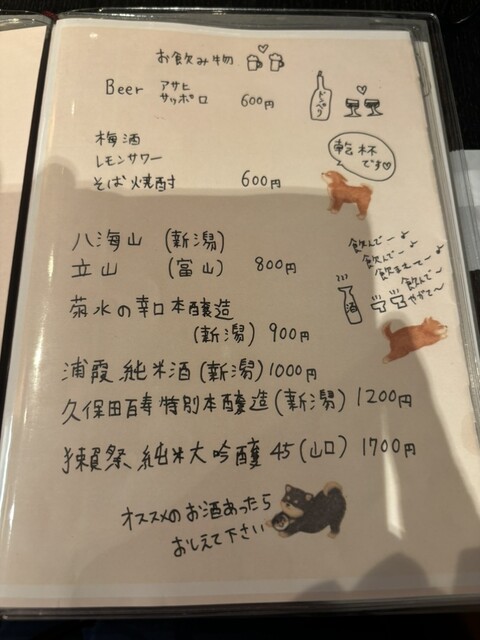 お飲み物
Beer アサヒ
サッポロ 600円
どんぺり
梅酒
レモンサワー
そば焼酎 600円
乾杯
です♡
八海山 (新潟)
立山 (富山) 800円
飲んでー♪
飲んでー♪
飲まれてー♪
飲んでー
やがて〜
酒
菊水の辛口本醸造
(新潟) 900円
浦霞 純米酒 (新潟) 1000円
久保田百寿特別本醸造 (新潟) 1200円
獺祭 純米大吟醸 45 (山口) 1700円
オススメのお酒あったら
おしえて下さい